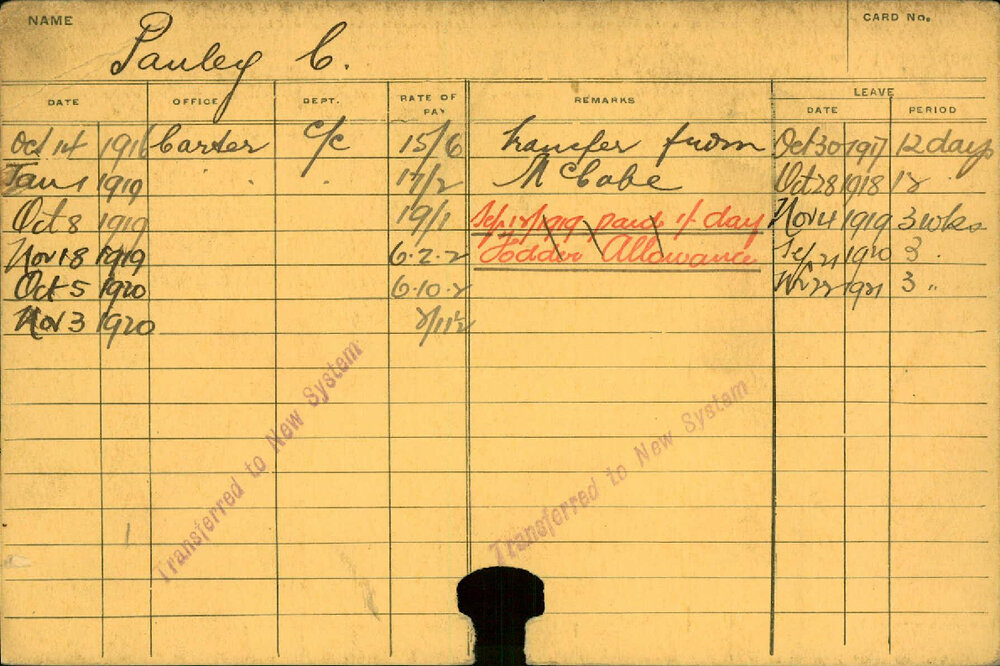 NAME
CARD No.
Pauley C.
DATE OFFICE DEPT. RATE OF PAY REMARKS LEAVE DATE PERIOD
Oct 14 1916 Carter c/c 15/6 Transfer from Oct 30 1917 12 days
Jan 1 1919 " " 17/2 McCabe Oct 28 1918 12
Oct 8 1919 19/1 Sep 12/1919 paid 1/ day Nov 4 1919 3 wks
Nov 18 1919 6.2.2 Fodder Allowance Sep 21 1920 3 "
Oct 5 1920 6.10.2 22 1921 3 "
Nov 3 1920 /11½
Transferred to New System
Transferred to New System